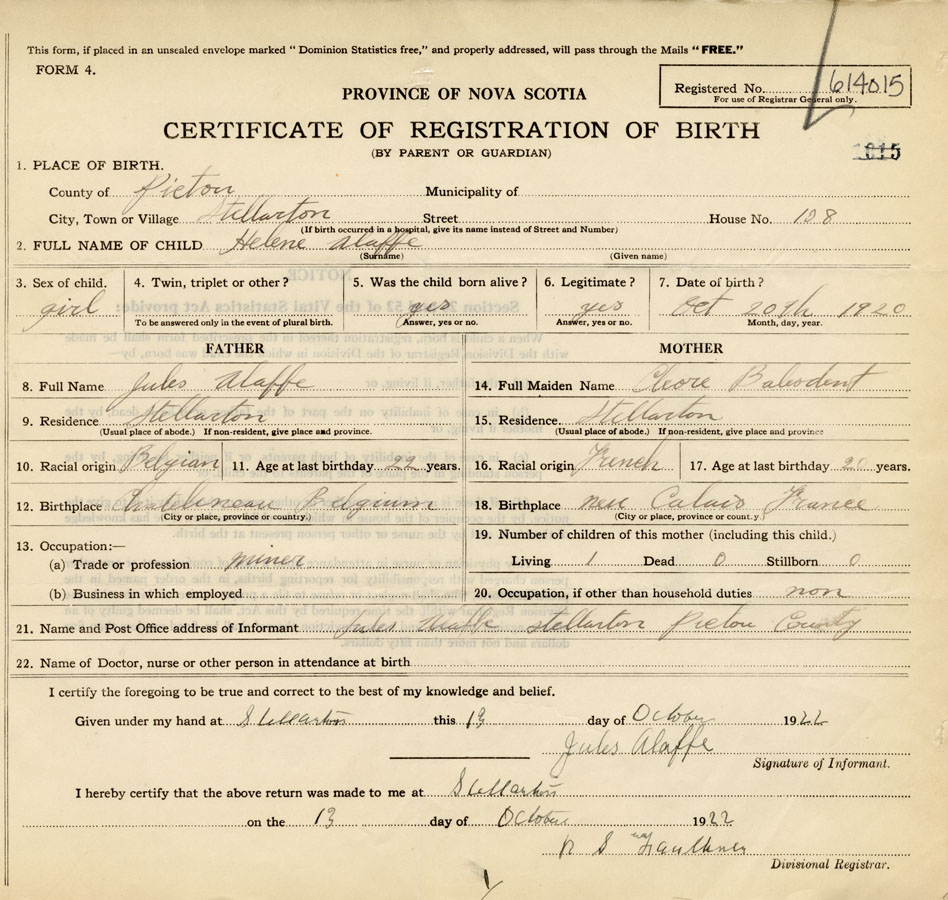 This form, if placed in an unsealed envelope marked "Dominion Statistics free," and properly addressed, will pass through the Mails "FREE."
FORM 4.
Registered No. 614015
For use of Registrar General only.
PROVINCE OF NOVA SCOTIA
CERTIFICATE OF REGISTRATION OF BIRTH
(BY PARENT OR GUARDIAN)
1. PLACE OF BIRTH.
County of Pictou Municipality of
City, Town or Village Stellarton Street House No. 128
(If birth occurred in a hospital, give its name instead of Street and Number)
2. FULL NAME OF CHILD Helene Alaffe
(Surname) (Given name)
3. Sex of child. 4. Twin, triplet or other? 5. Was the child born alive? 6. Legitimate? 7. Date of birth?
girl yes yes Oct 20th 1920
To be answered only in the event of plural birth. (Answer, yes or no. Answer, yes or no. Month, day, year.
FATHER MOTHER
8. Full Name Jules Alaffe 14. Full Maiden Name Cleore
9. Residence Stellarton 15. Residence Stellarton
(Usual place of abode.) If non-resident, give place and province. (Usual place of abode.) If non-resident, give place and province
10. Racial origin Belgian 11. Age at last birthday 22 years. 16. Racial origin French 17. Age at last birthday 20 years.
12. Birthplace Chatelineau Belgium 18. Birthplace Calais France
(City or place, province or country.) (City or place, province or county.)
13. Occupation:— 19. Number of children of this mother (including this child.)
(a) Trade or profession miner Living 1 Dead 0 Stillborn 0
(b) Business in which employed 20. Occupation, if other than household duties non
21. Name and Post Office address of Informant Jules Alaffe stellarton Pictou County
22. Name of Doctor, nurse or other person in attendance at birth
I certify the foregoing to be true and correct to the best of my knowledge and belief.
Given under my hand at Stellarton this 13 day of October 1922
Jules Alaffe
Signature of Informant.
I hereby certify that the above return was made to me at Stellarton
on the 13 day of October 1922
Faulkner
Divisional Registrar.